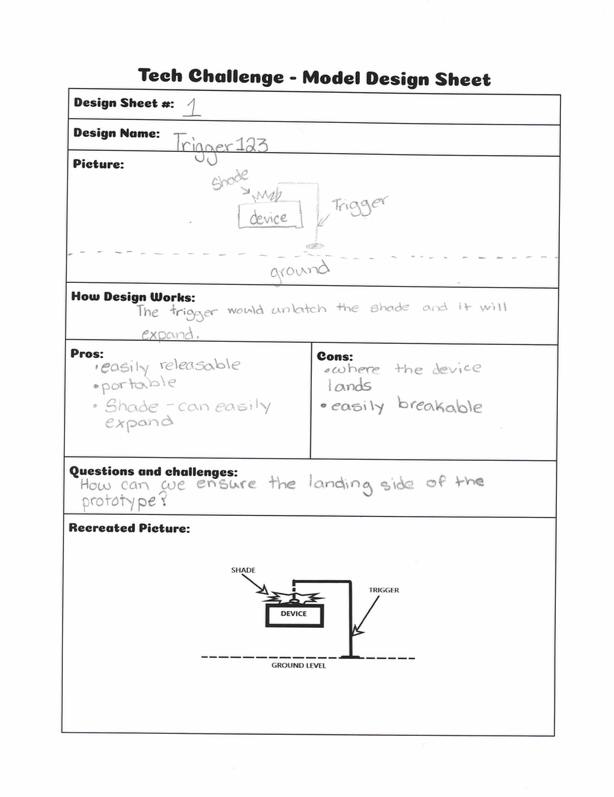 Tech Challenge - Model Design Sheet
Design Sheet #: 1
Design Name: Trigger123
Picture:
Shade
device
Trigger
ground
How Design Works:
The trigger would unlatch the shade and it will
expand.
Pros:
•easily releasable
•portable
• Shade - can easily
expand
Cons:
•where the device
lands
•easily breakable
Questions and challenges:
How can we ensure the landing side of the
prototype?
Recreated Picture:
SHADE
DEVICE
TRIGGER
GROUND LEVEL